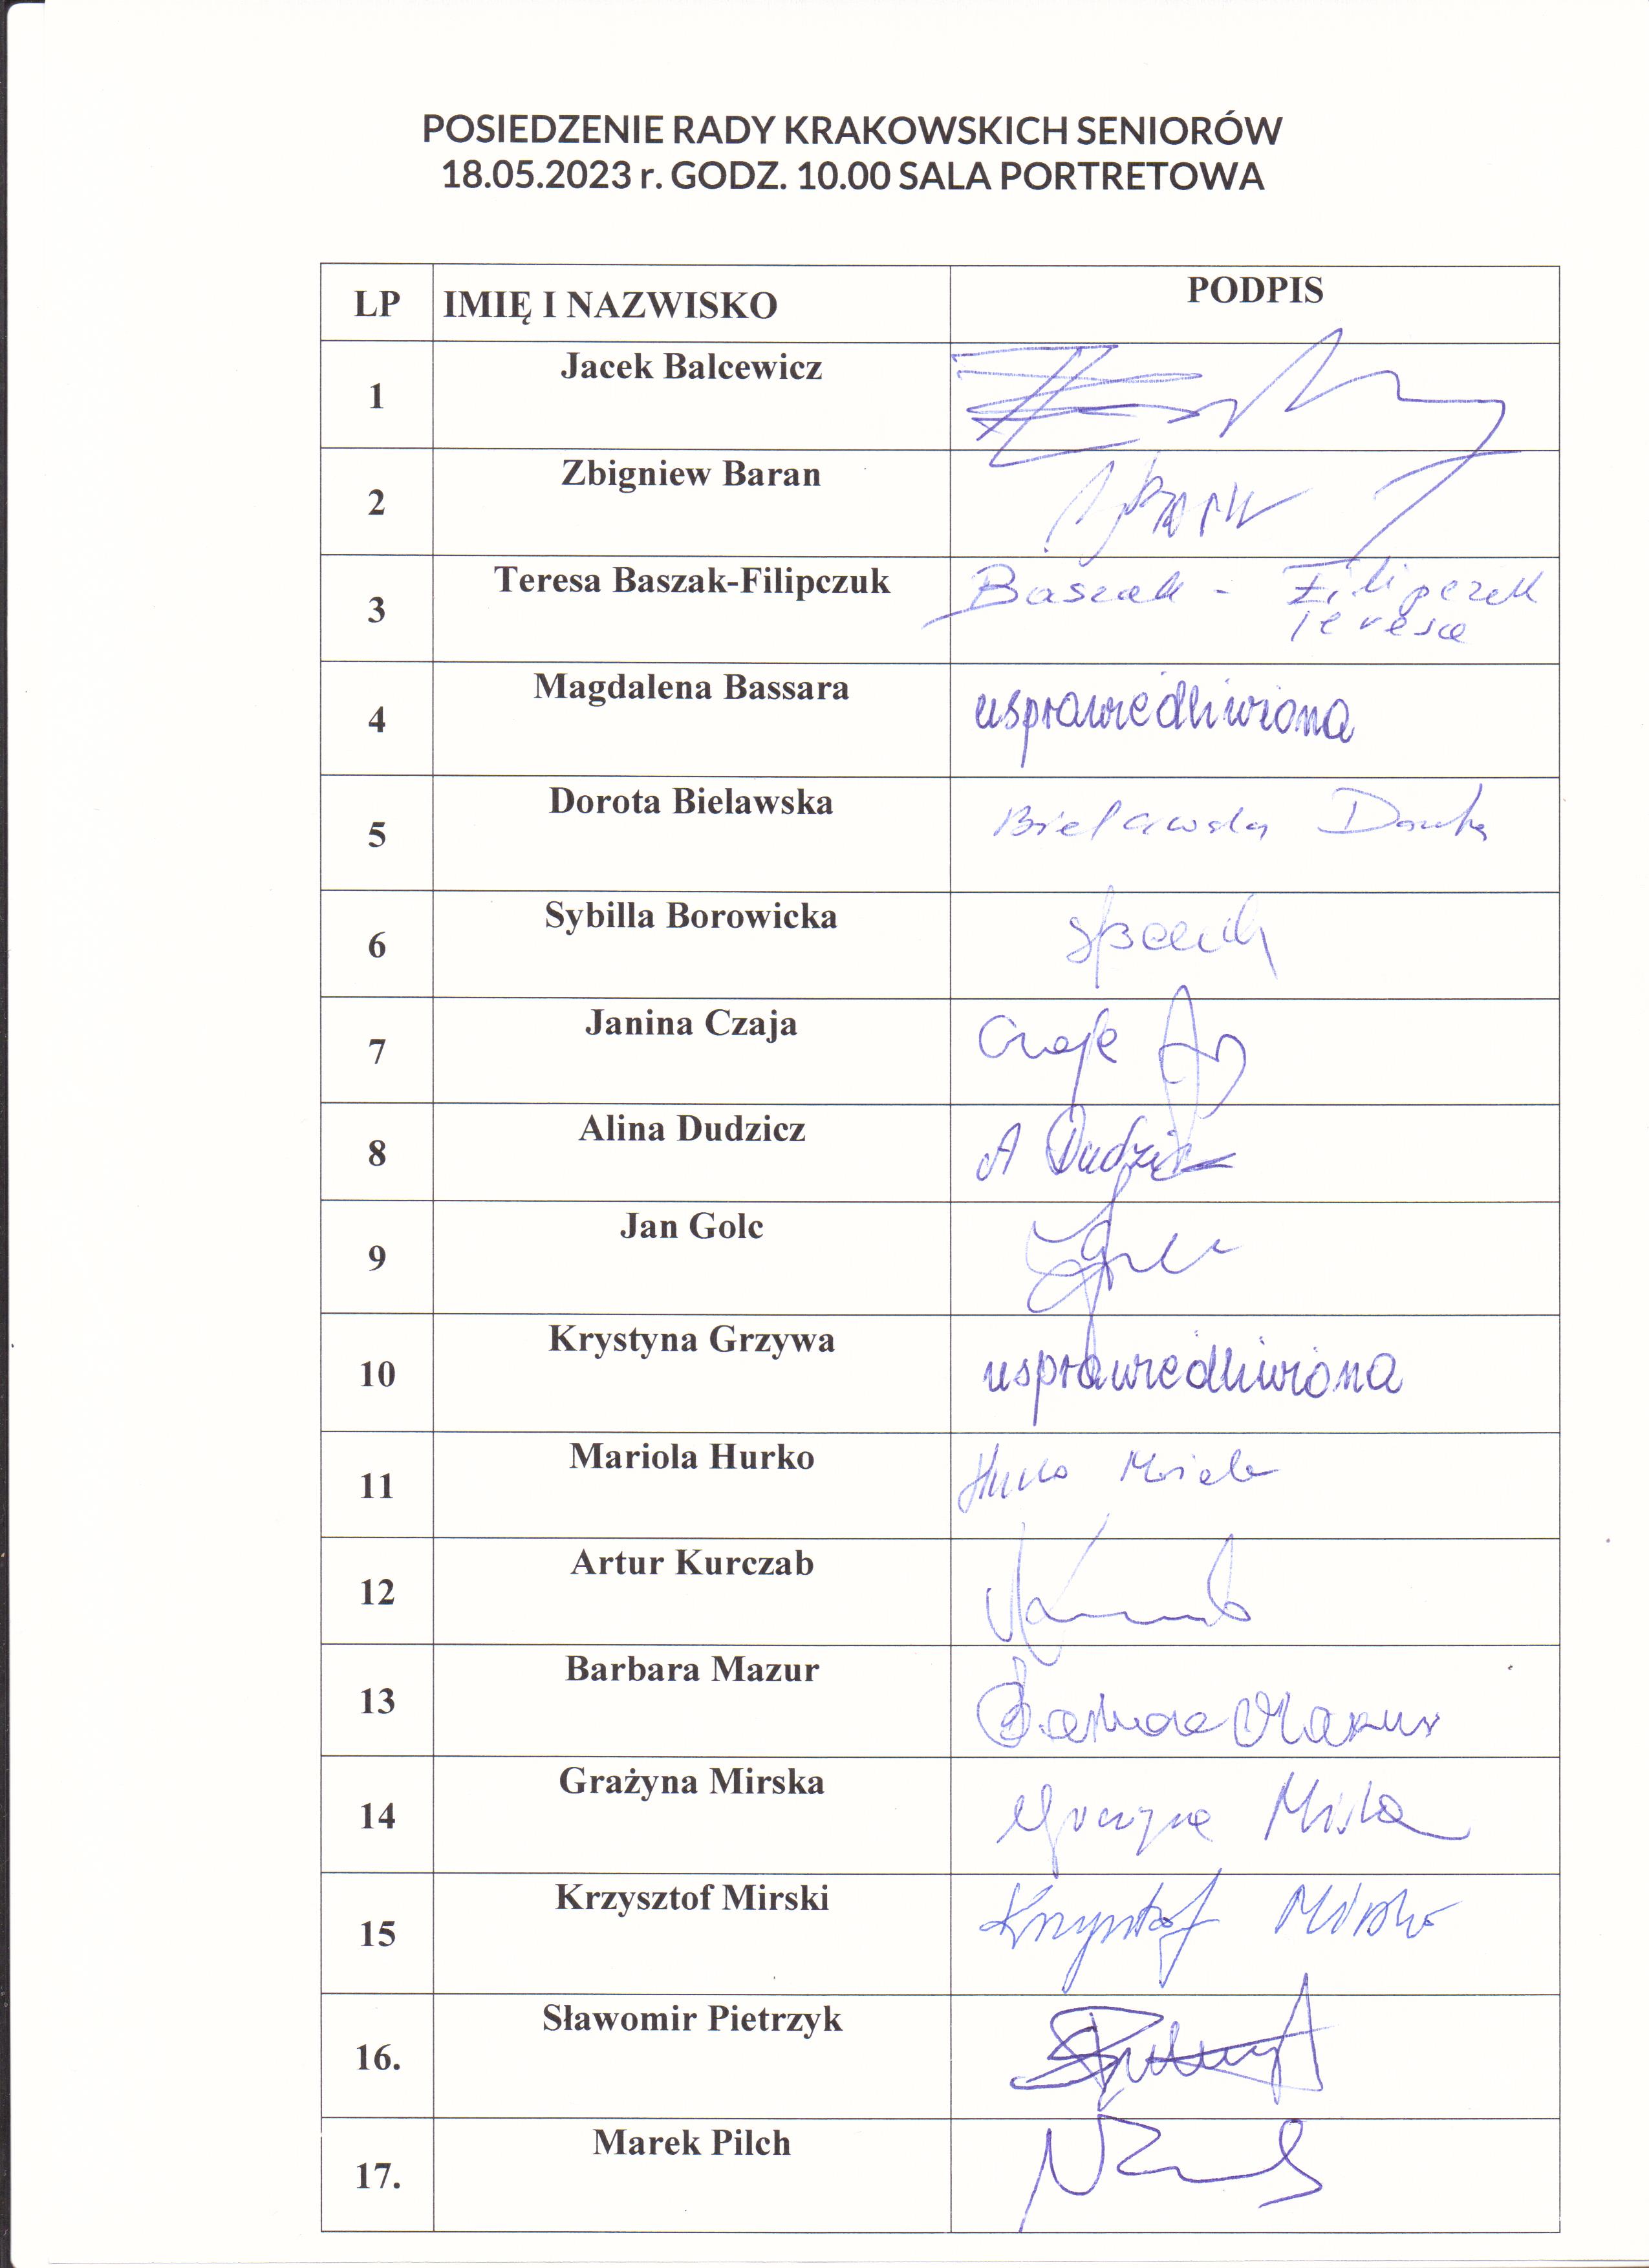 POSIEDZENIE RADY KRAKOWSKICH SENIORÓW
18.05.2023 r. GODZ. 10.00 SALA PORTRETOWA
LP IMIĘ I NAZWISKO PODPIS
1 Jacek Balcewicz
2 Zbigniew Baran
3 Teresa Baszak-Filipczuk Baszak - Filipczuk
Teresa
4 Magdalena Bassara usprawiedliwiona
5 Dorota Bielawska Bielawska Dorota
6 Sybilla Borowicka
7 Janina Czaja Czaja
8 Alina Dudzicz A Dudzicz
9 Jan Golc
10 Krystyna Grzywa usprawiedliwiona
11 Mariola Hurko Hurko Mariola
12 Artur Kurczab
13 Barbara Mazur Barbara Mazur
14 Grażyna Mirska Grażyna Mirska
15 Krzysztof Mirski Krzysztof Mirski
16. Sławomir Pietrzyk
17. Marek Pilch